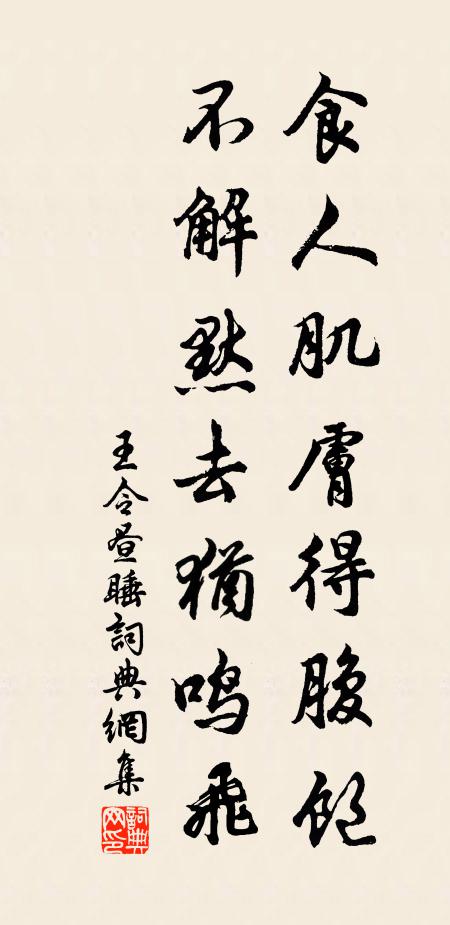 食人肌膚得腹飽
不解默去猶鳴飛
王令晝睡詞典網集
詞典网印